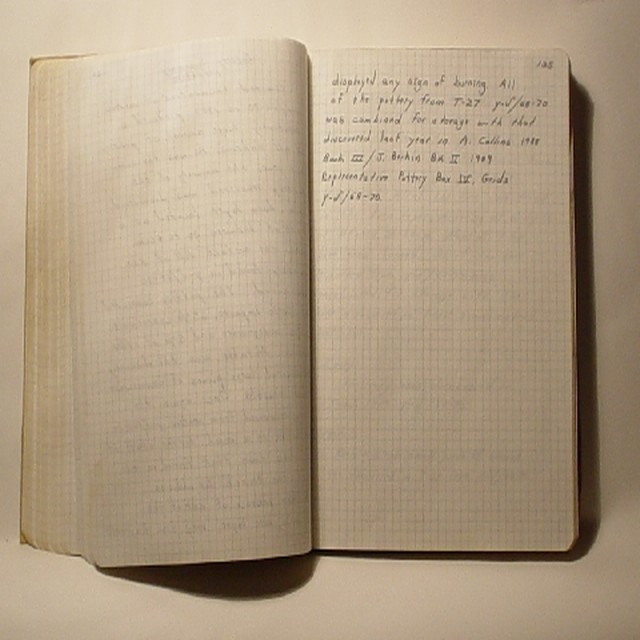 displayed any sign of burning. All
of the pottery from T-27 y-d/68-70
was combined for storage with that
discovered last year in A. Collins 1988
Book III / J. Berkin Bk II 1989
Representative Pottery Box IV, Grids
y-d/68-70.